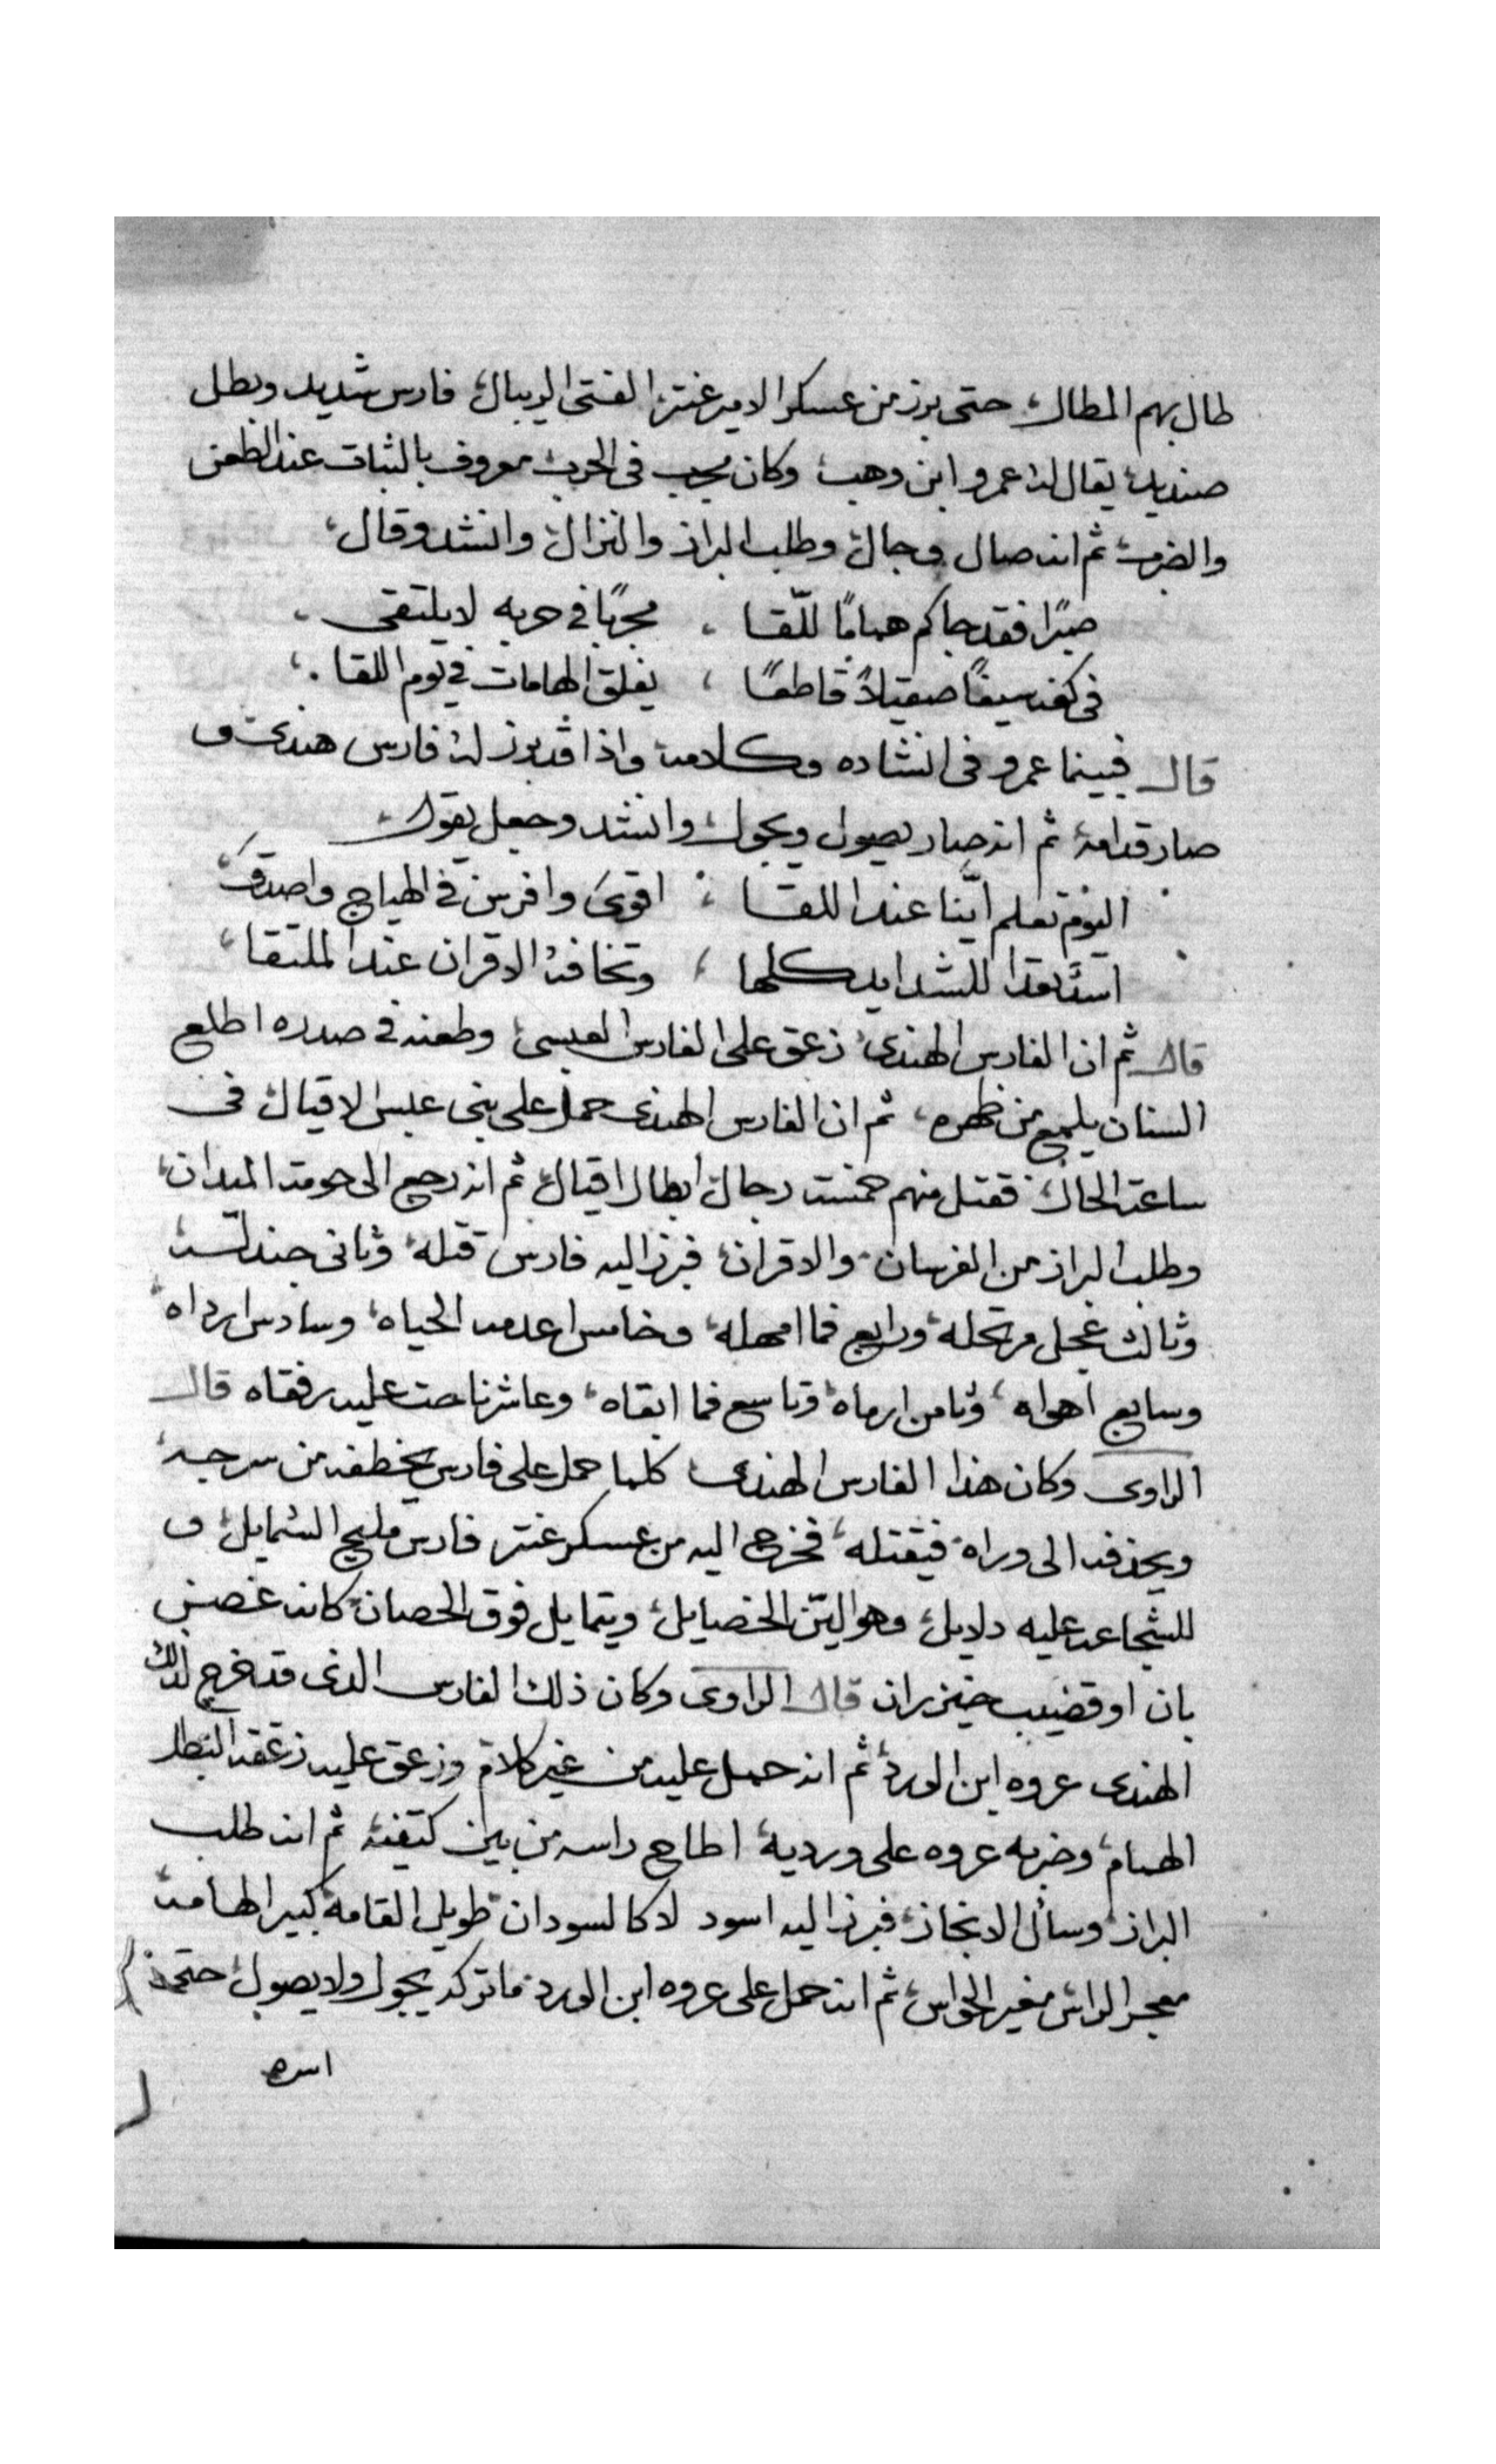 طال بهم المطال، حتى برز من عسكر الامير عنتر الفتى الريبال، فارس شديد وبطل
صنديد، يقال له عمرو ابن وهب، وكان مجرب فى الحرب، معروف بالثبات عند الطعن
والضرب، ثم انه صال وجال، وطلب البراز والنزال، وانشد وقال،
صبرًا فقد جاكم همامًا للّقا ، مجربًا في حربه لا يلتقى ،
فى كفه سيفًا صقيلاً قاطعًا ، يفلق الهامات في يوم اللقا ،
قال فبينما عمرو فى انشاده وكلامه، واذا قد برز له فارس هندى و
صار قدامه، ثم انه صار يصول ويجول، وانشد وجعل يقول،
اليوم تعلم ايّنا عند اللقا ، اقوى وافرس في الهياج واصدق
اسدٌ يعد للشدايد كلها ، وتخافه الاقران عند الملتقا،
قال ثم ان الفارس الهندى، زعق على الفارس العبسى، وطعنه في صدره اطلع
السنان يلمع من ظهره، ثم ان الفارس الهندى حمل على بنى عبس الاقيال، فى
ساعة الحال، فقتل منهم خمست رجال، ابطال اقيال، ثم انه رجع الى حومة الميدان،
وطلب البراز من الفرسان، والاقران، فبرز اليه فارس قتله، وثانى جندله،
وثالث عجل مرتحله، ورابع فما امهله، وخامس اعدمه الحياه، وسادس ارداه،
وسابع اهواه، وثامن ارماه، وتاسع فما ابقاه، وعاشر ناحت عليه رفقاه قال
الراوى وكان هذا الفارس الهندى كلما حمل على فارس يخطفه من سرجه،
ويحذفه الى وراه، فيقتله، فخرج اليه من عسكر عنتر فارس مليح الشمايل، و
للشجاعه عليه دلايل، وهو اليّن الخصايل، ويتمايل فوق الحصان، كانه غصن
بان او قضيب خيزران قال الراوى وكان ذلك الفارس الذى قد خرج لذلك
الهندى عروه ابن الورد، ثم انه حمل عليه من غير كلام، وزعق عليه زعقة البطل
الهمام، وضربه عروه على وريديه، اطاح راسه من بين كتفيه، ثم انه طلب
البراز، وسأل الانجاز، فبرز اليه اسود لا كالسودان، طويل القامه، كبير الهامه،
معجر الراس، مغير الحواس، ثم انه حمل على عروه ابن الورد، ما تركه يجول ولا يصول، حتى
اسره